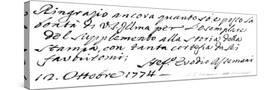 Ringrazio ancora quanto so, e posso la
bontà di V. S. Illma per l'esemplare
del Supplemento alla Storia della
Stampa, con tanta cortesia da lei
favoritomi.
Assemani
12. Ottobre 1774